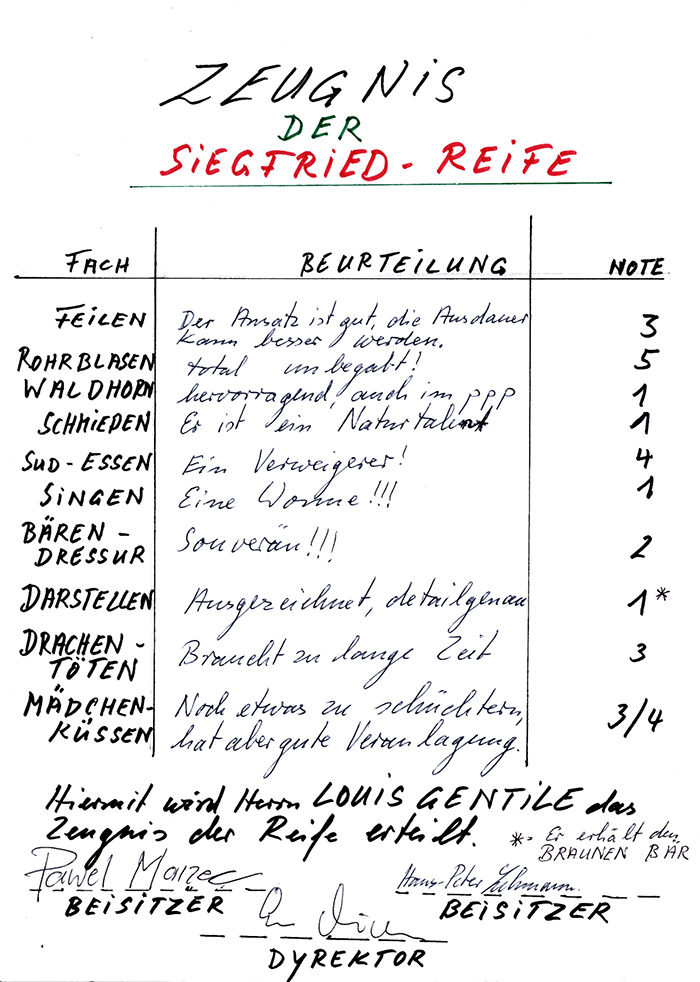 ZEUGNiS
DER
SiEGFRiED - REiFE
FACH BEURTEiLUNG NOTE
FEiLEN Der Ansatz ist gut, die Ausdauer kann besser werden. 3
ROHRBLASEN total unbegabt! 5
WALDHORN hervorragend, auch im ppp 1
SCHMiEDEN Er ist ein Naturtalent 1
SUD-ESSEN Ein Verweigerer! 4
SiNGEN Eine Wonne!!! 1
BÄREN-DRESSUR Souverän!!! 2
DARSTELLEN Ausgezeichnet, detailgenau 1*
DRACHEN-TÖTEN Braucht zu lange Zeit 3
MÄDCHEN-KÜSSEN Noch etwas zu schüchtern, hat aber gute Veranlagung. 3/4
Hiermit wird Herrn LOUiS GENTiLE das
Zeugnis der Reife erteilt.
*= Er erhält den
BRAUNEN BÄR
Pawel Marzec
BEiSiTZER
Hans-Peter Lehmann
BEiSiTZER
DYREKTOR